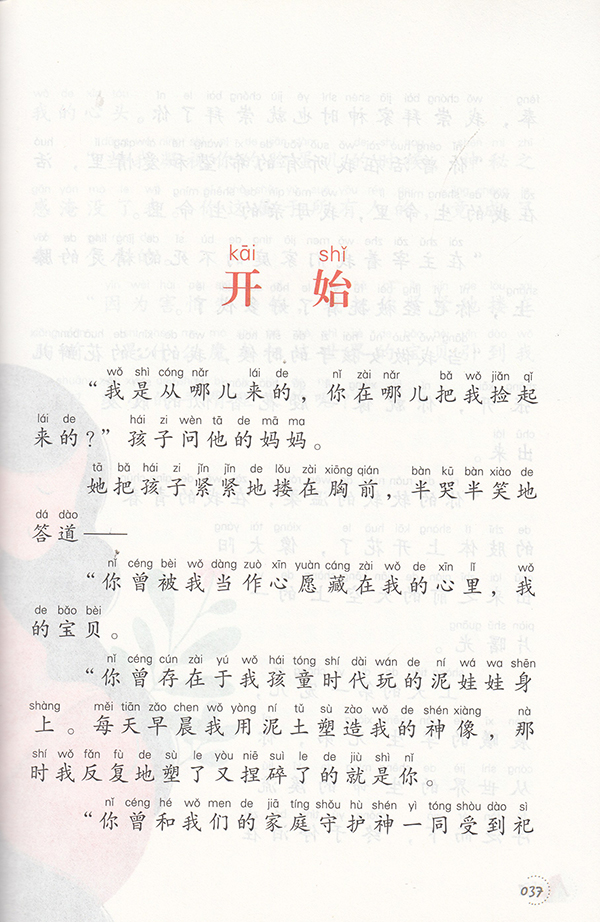 kāi shǐ
开 始
wǒ shì cóng nǎr lái de nǐ zài nǎr bǎ wǒ jiǎn qǐ
“我是从哪儿来的，你在哪儿把我捡起
lái de hái zi wèn tā de mā ma
来的？”孩子问他的妈妈。
tā bǎ hái zi jǐn jǐn de lǒu zài xiōng qián bàn kū bàn xiào de
她把孩子紧紧地搂在胸前，半哭半笑地
dá dào
答道——
nǐ céng bèi wǒ dàng zuò xīn yuàn cáng zài wǒ de xīn lǐ wǒ
“你曾被我当作心愿藏在我的心里，我
de bǎo bèi
的宝贝。
nǐ céng cún zài yú wǒ hái tóng shí dài wán de ní wá wa shēn
“你曾存在于我孩童时代玩的泥娃娃身
shàng měi tiān zǎo chen wǒ yòng ní tǔ sù zào wǒ de shén xiàng nà
上。每天早晨我用泥土塑造我的神像，那
shí wǒ fǎn fù de sù le yòu niē suì le de jiù shì nǐ
时我反复地塑了又捏碎了的就是你。
nǐ céng hé wǒ men de jiā tíng shǒu hù shén yì tóng shòu dào sì
“你曾和我们的家庭守护神一同受到祀
037